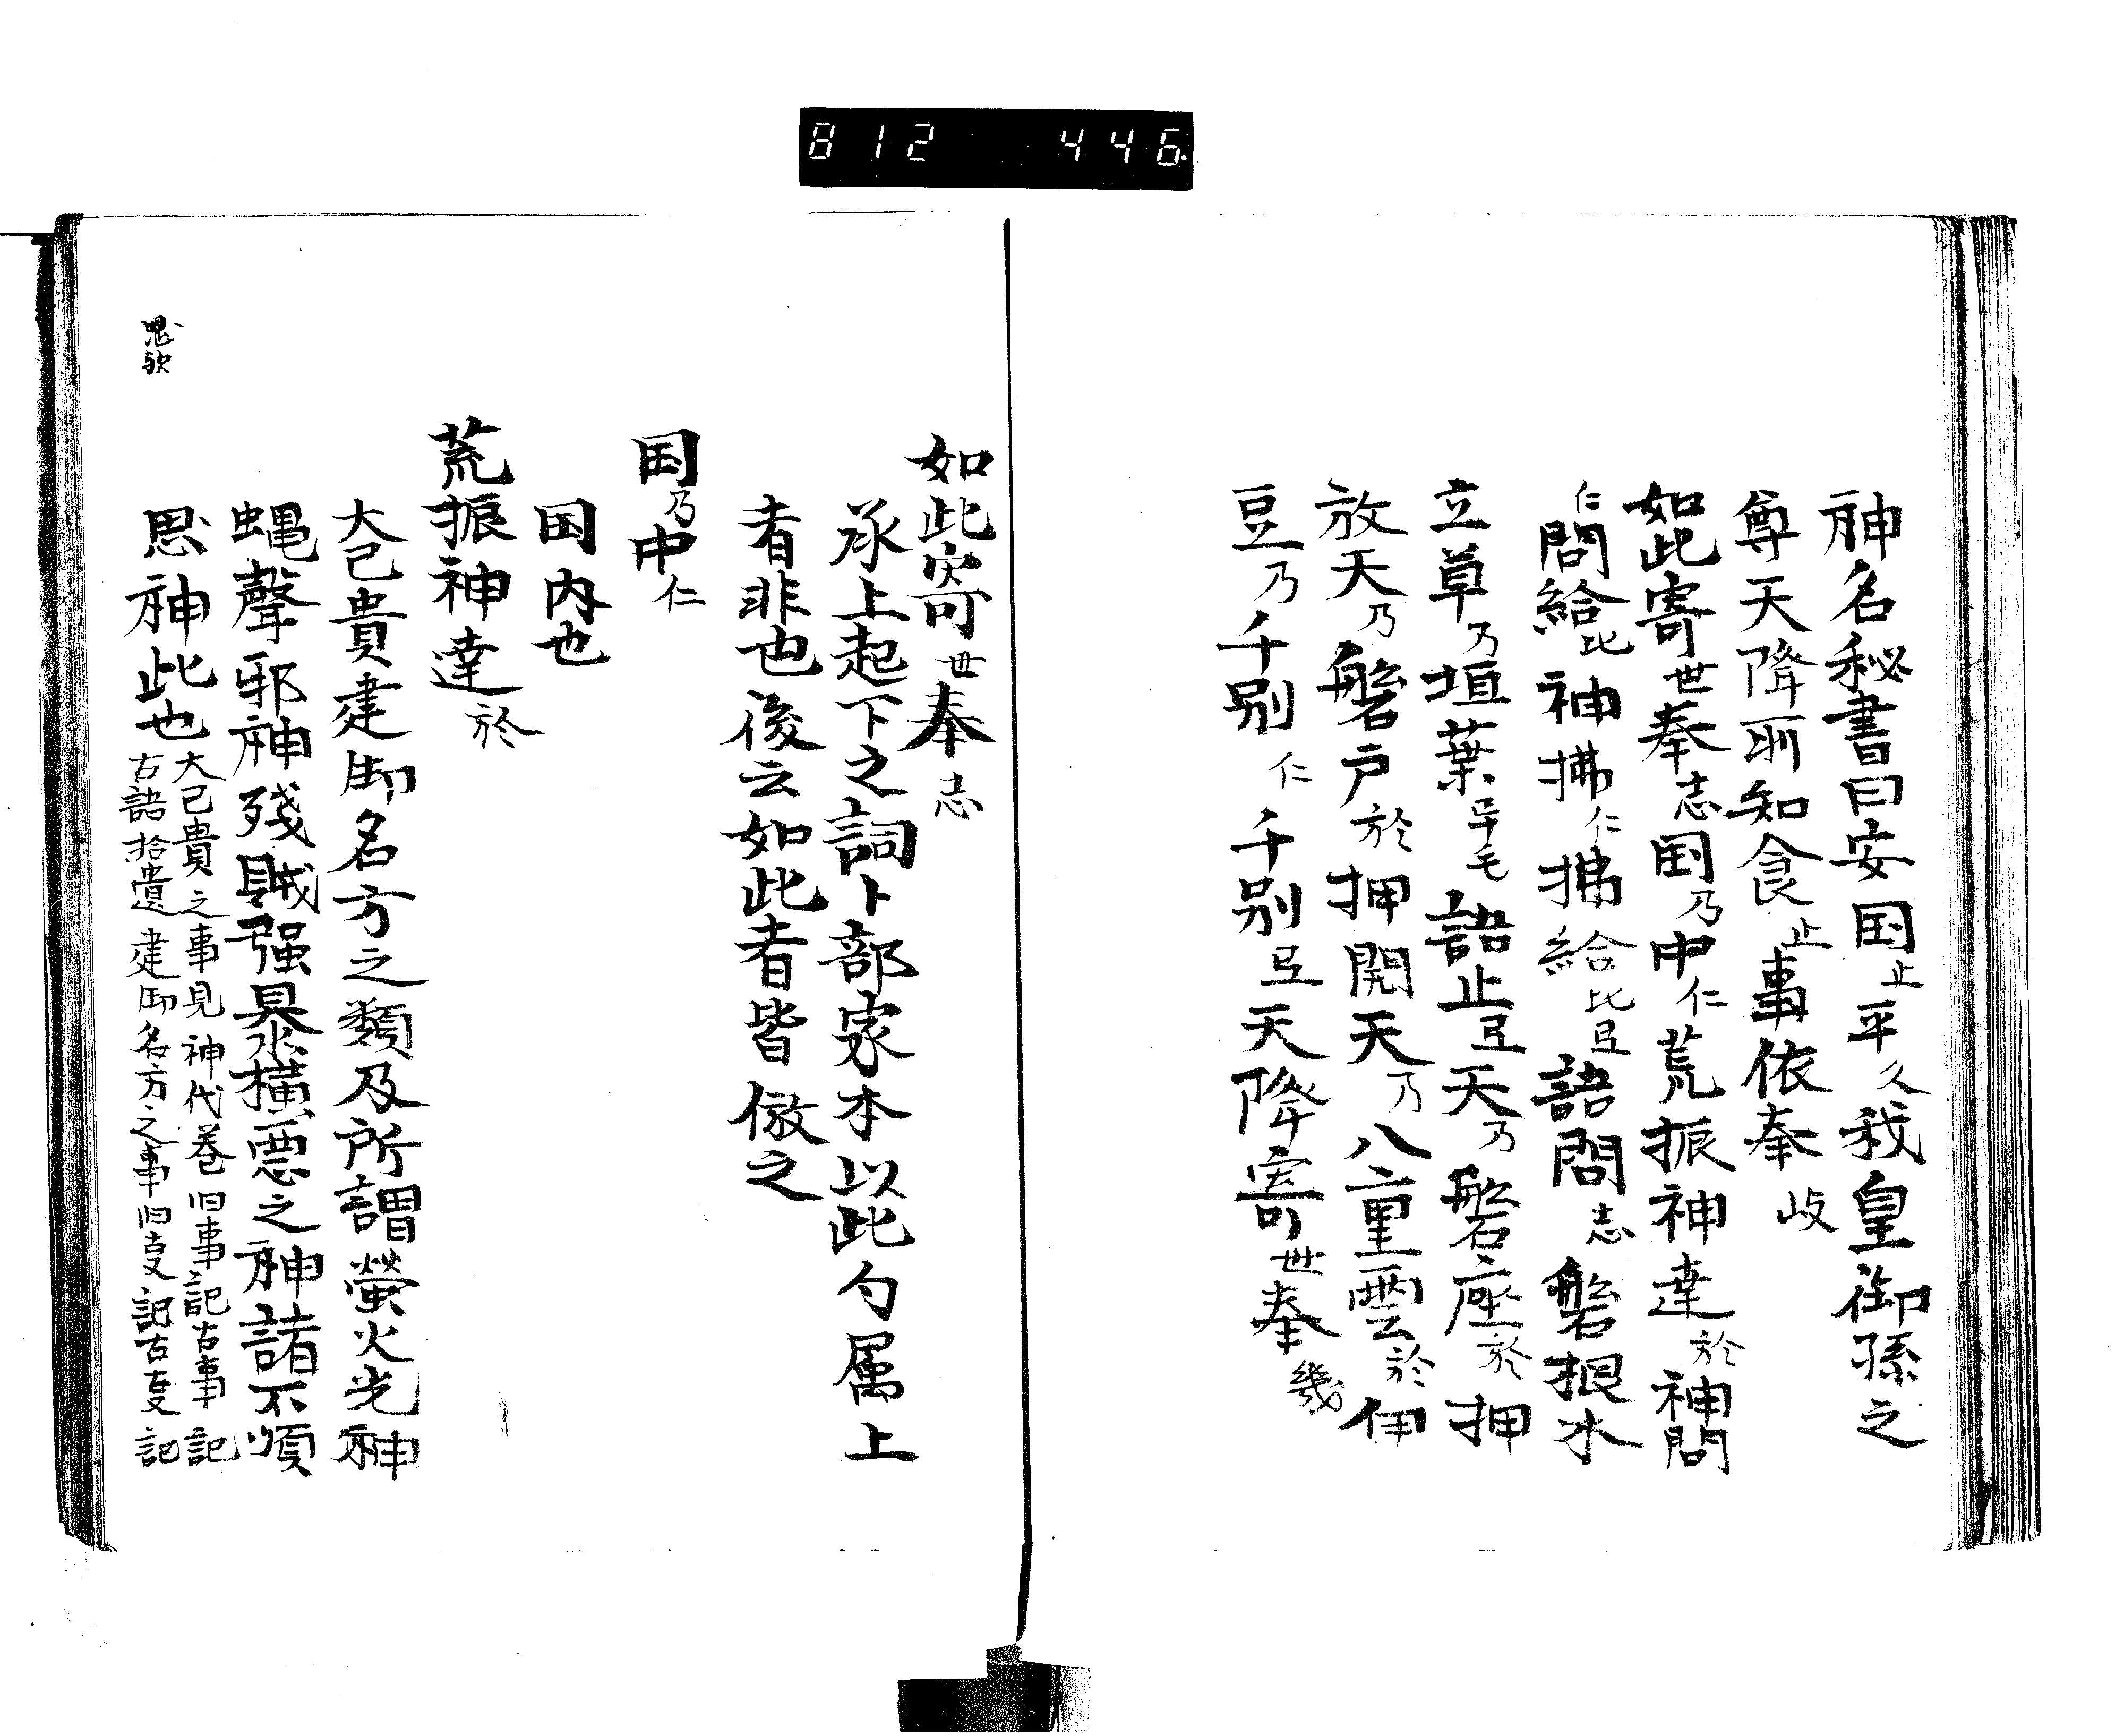 812 446
神名秘書曰安国止平久我皇御孫之
尊天降所知食止事依奉岐
如此寄世奉志国乃中仁荒振神達於神問
仁問給比神拂仁拂給比豆語問志磐根水
立草乃垣葉乎毛語止豆天乃磐座於押
放天乃磐戸於押開天乃八重雲於伊
豆乃千別仁千別豆天降寄世奉幾
如此寄世奉志
承上起下之詞卜部家本以此勺属上
者非也後云如此者皆倣之
国乃中仁
国内也
荒振神達於
大己貴建御名方之類及所謂螢火光神
蝿聲邪神残賊强暴横悪之神諸不順
思神此也大己貴之事見神代巻旧事記古事記
古語拾遺建御名方之事旧叓記古叓記
鬼欤